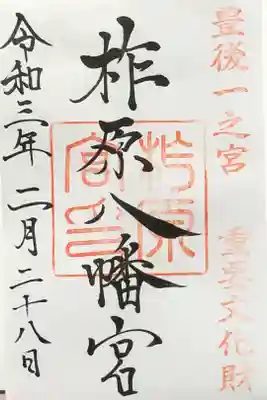 豊後一之宮 重要文化財
柞原八幡宮
令和三年二月二十八日